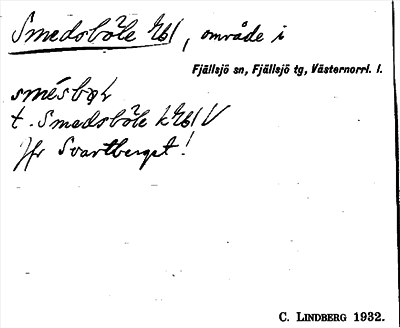 Smedsböle kbl, område i
Fjällsjö sn, Fjällsjö tg, Västernorrl. l.
smésbøL
t. Smedsböle kbl V
Jfr Svartberget!
C. LINDBERG 1932.